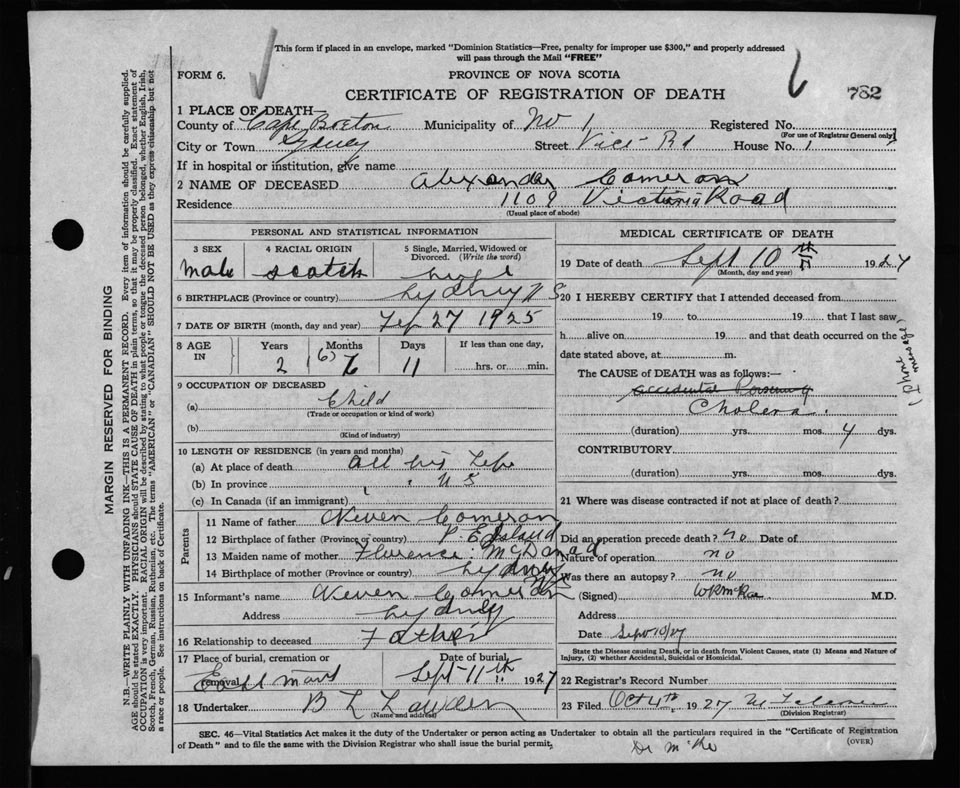 This form if placed in an envelope, marked "Dominion Statistics—Free, penalty for improper use $300," and properly addressed
will pass through the Mail "FREE"
FORM 6.
PROVINCE OF NOVA SCOTIA
CERTIFICATE OF REGISTRATION OF DEATH
782
1 PLACE OF DEATH—
County of Cape Breton Municipality of No 1 Registered No.
(For use of Registrar General only)
City or Town Sydney Street Vict- Rd House No. 1
If in hospital or institution, give name
2 NAME OF DECEASED Alexander Cameron
Residence 1109 Victoria Road
(Usual place of abode)
PERSONAL AND STATISTICAL INFORMATION
3 SEX 4 RACIAL ORIGIN 5 Single, Married, Widowed or Divorced. (Write the word)
male scotch single
6 BIRTHPLACE (Province or country) Sydney N S
7 DATE OF BIRTH (month, day and year) Feb 27 1925
8 AGE IN Years Months Days If less than one day,
2 (6) 6 11 hrs. or min.
9 OCCUPATION OF DECEASED
(a) Child
(Trade or occupation or kind of work)
(b)
(Kind of industry)
10 LENGTH OF RESIDENCE (in years and months)
(a) At place of death all his Life
(b) In province " " N S
(c) In Canada (if an immigrant)
Parents
11 Name of father Neven Cameron
12 Birthplace of father (Province or country) P. E Island
13 Maiden name of mother Florence McDonad
14 Birthplace of mother (Province or country) Sydney NS
15 Informant's name Neven Cameron
Address Sydney
16 Relationship to deceased Father
17 Place of burial, cremation or removal Date of burial
East mount Sept 11th 1927
18 Undertaker B L
(Name and address)
MEDICAL CERTIFICATE OF DEATH
19 Date of death Sept 10 th 1927
(Month, day and year)
20 I HEREBY CERTIFY that I attended deceased from
19 to 19 that I last saw
h alive on 19 and that death occurred on the
date stated above, at m.
The CAUSE OF DEATH was as follows:—
accidental Poisoning
Cholera.
(Phone message)
(duration) yrs. mos. 4 dys.
CONTRIBUTORY
(duration) yrs. mos. dys.
21 Where was disease contracted if not at place of death?
Did an operation precede death? no Date of
Nature of operation no
Was there an autopsy? no
(Signed) M.D.
Address
Date Sept 10/27
State the Disease causing Death, or in death from Violent Causes, state (1) Means and Nature of
Injury, (2) whether Accidental, Suicidal or Homicidal.
22 Registrar's Record Number
23 Filed Oct 4th 1927
(Division Registrar)
SEC. 46—Vital Statistics Act makes it the duty of the Undertaker or person acting as Undertaker to obtain all the particulars required in the "Certificate of Registration
of Death" and to file the same with the Division Registrar who shall issue the burial permit.
(OVER)
MARGIN RESERVED FOR BINDING
N.B.—WRITE PLAINLY WITH UNFADING INK—THIS IS A PERMANENT RECORD. Every item of information should be carefully supplied.
AGE should be stated EXACTLY. PHYSICIANS should STATE CAUSE OF DEATH in plain terms, so that it may be properly classified. Exact statement of
OCCUPATION is very important. RACIAL ORIGIN will be described by stating to what people or tongue the deceased person belonged, whether English, Irish,
Scotch, French, German, Russian, Ruthenian, etc. The terms "AMERICAN" or "CANADIAN" SHOULD NOT BE USED as they express citizenship but not
a race or people. See instructions on back of Certificate.